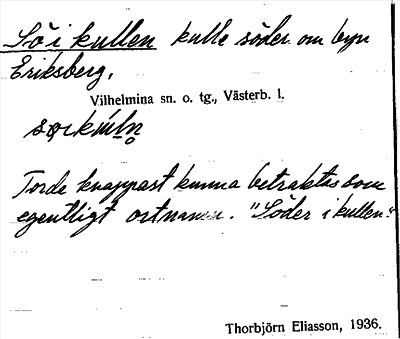 Sö i kullen kulle söder om byn
Eriksberg,
Vilhelmina sn. o. tg., Västerb. l.
Torde knappast kunna betraktas som
egentligt ortnamn. "Söder i kullen".
Thorbjörn Eliasson, 1936.